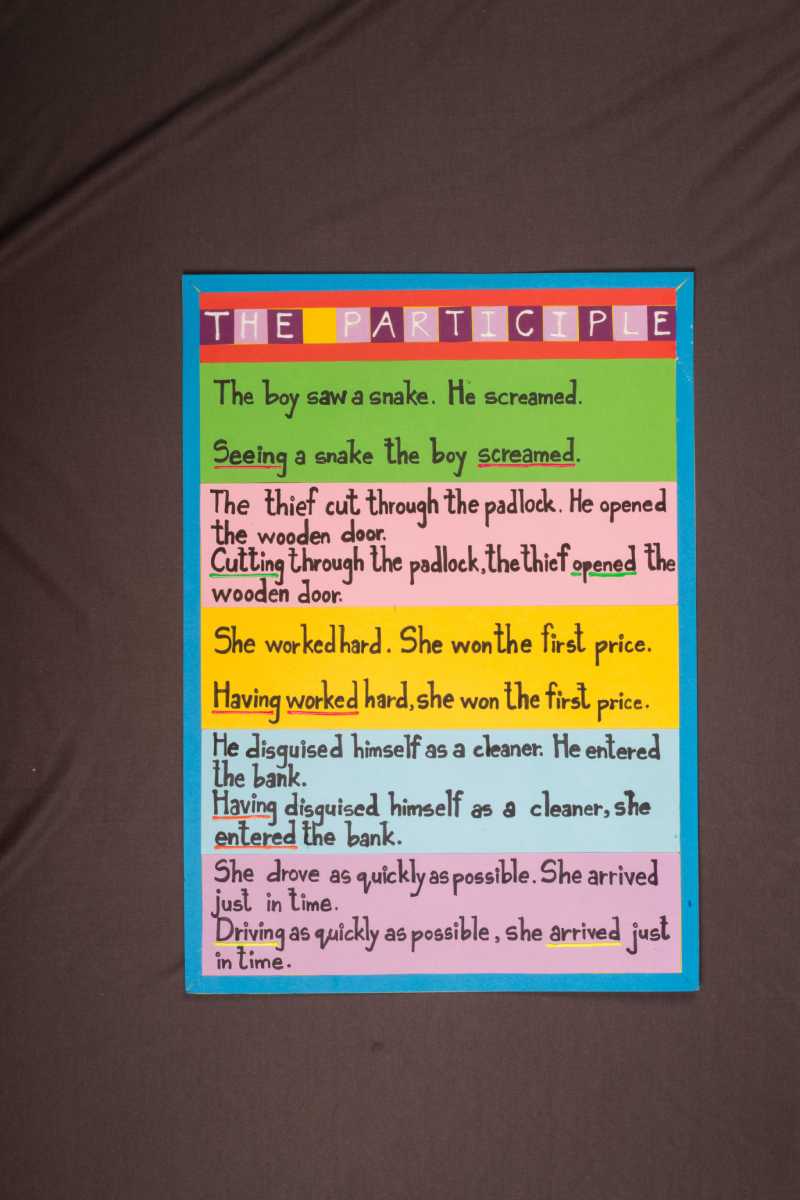 THE PARTICIPLE
The boy saw a snake. He screamed.
Seeing a snake the boy screamed.
The thief cut through the padlock. He opened
the wooden door.
Cutting through the padlock, the thief opened the
wooden door.
She worked hard. She won the first price.
Having worked hard, she won the first price.
He disguised himself as a cleaner. He entered
the bank.
Having disguised himself as a cleaner, she
entered the bank.
She drove as quickly as possible. She arrived
just in time.
Driving as quickly as possible, she arrived just
in time.